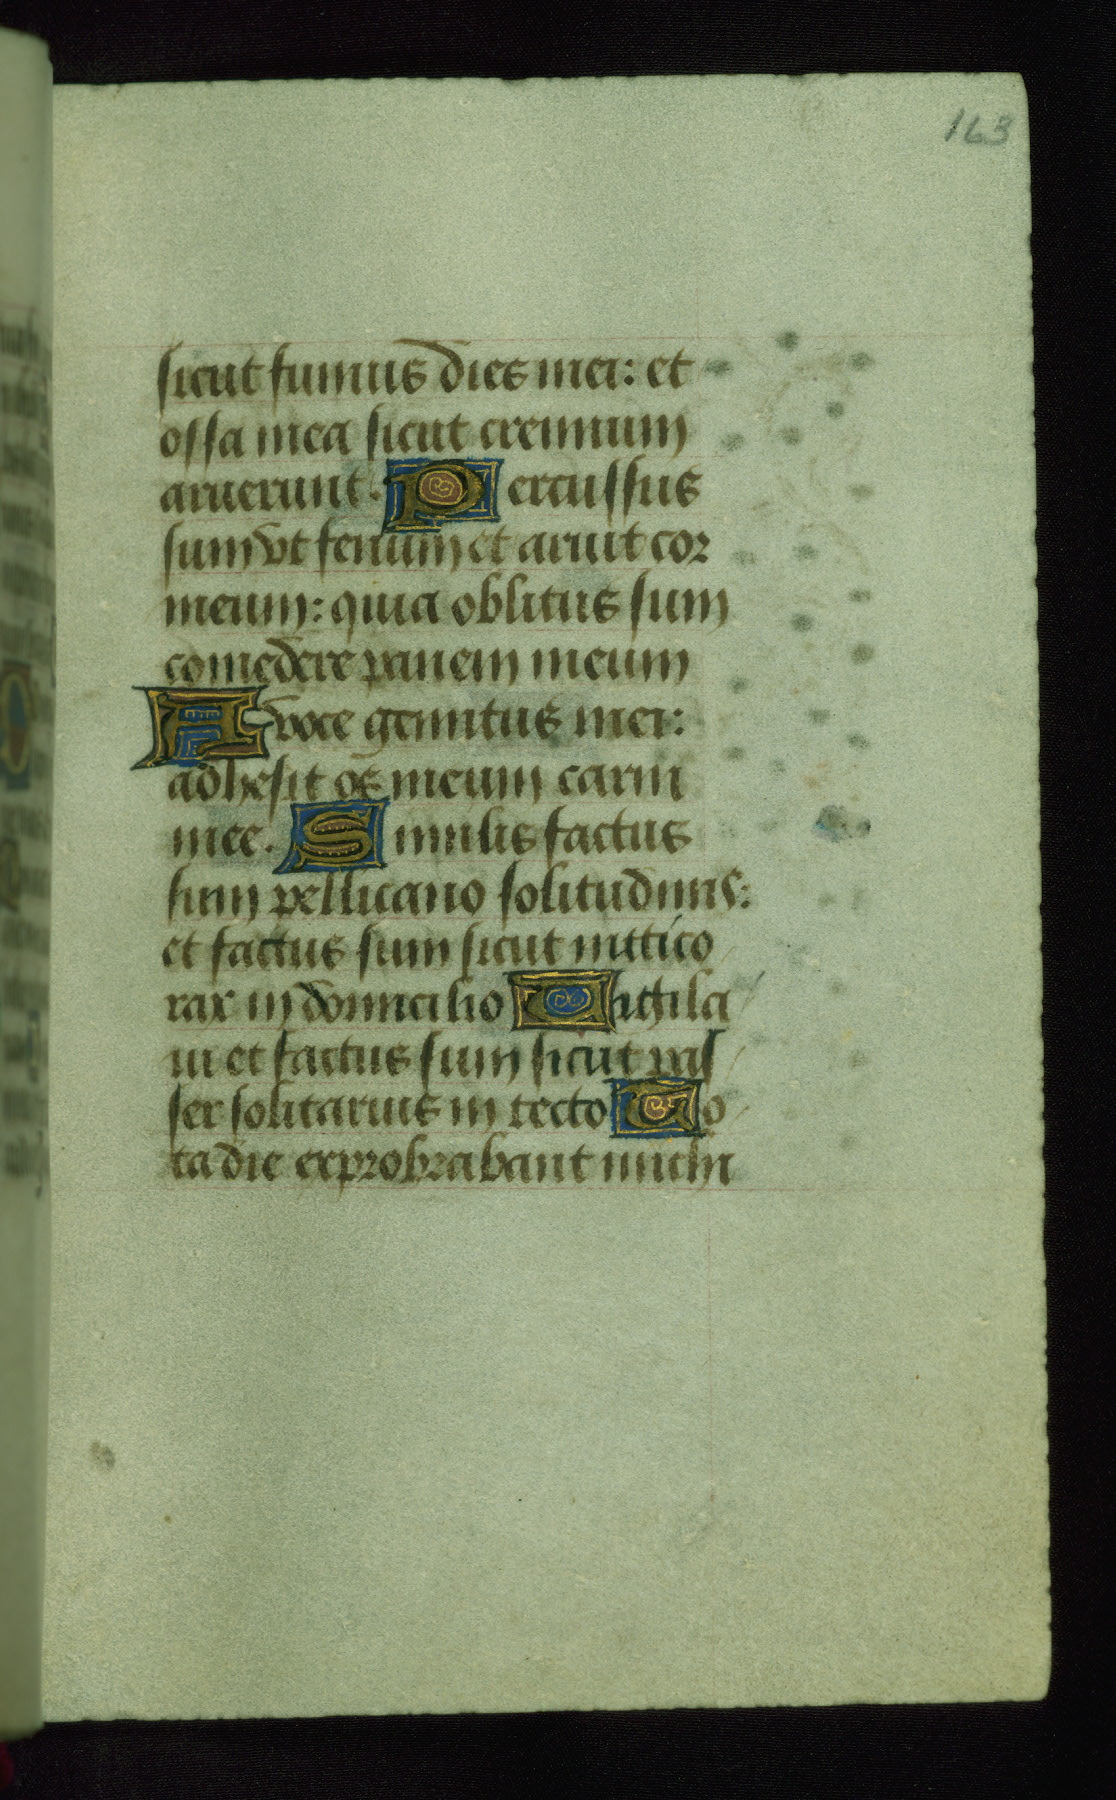 163
sicut fumus dies mei: et
ossa mea sicut cremium
aruerunt. Percussus
sum vt fenum et aruit cor
meum: quia oblitus sum
comedere panem meum
A voce gemitus mei:
adhesit os meum carni
mee. Similis factus
sum pellicano solitudinis:
et factus sum sicut nittico
rax in domicilio Uigila
ui et factus sum sicut pas
ser solitarius in tecto To
ta die exprobrabant michi